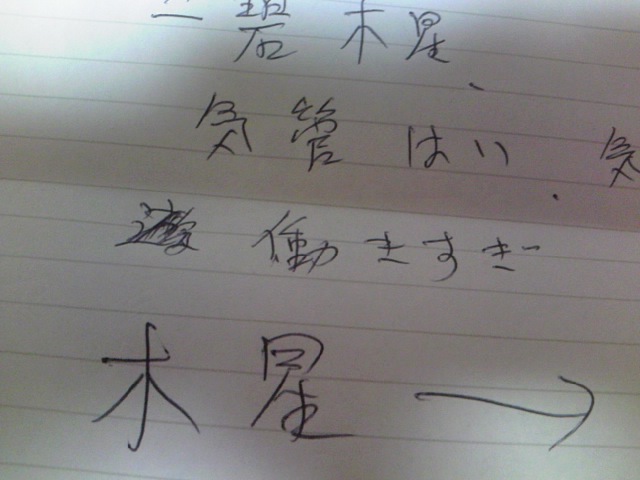 木星、
気管はい、気
働きすぎ
木星→